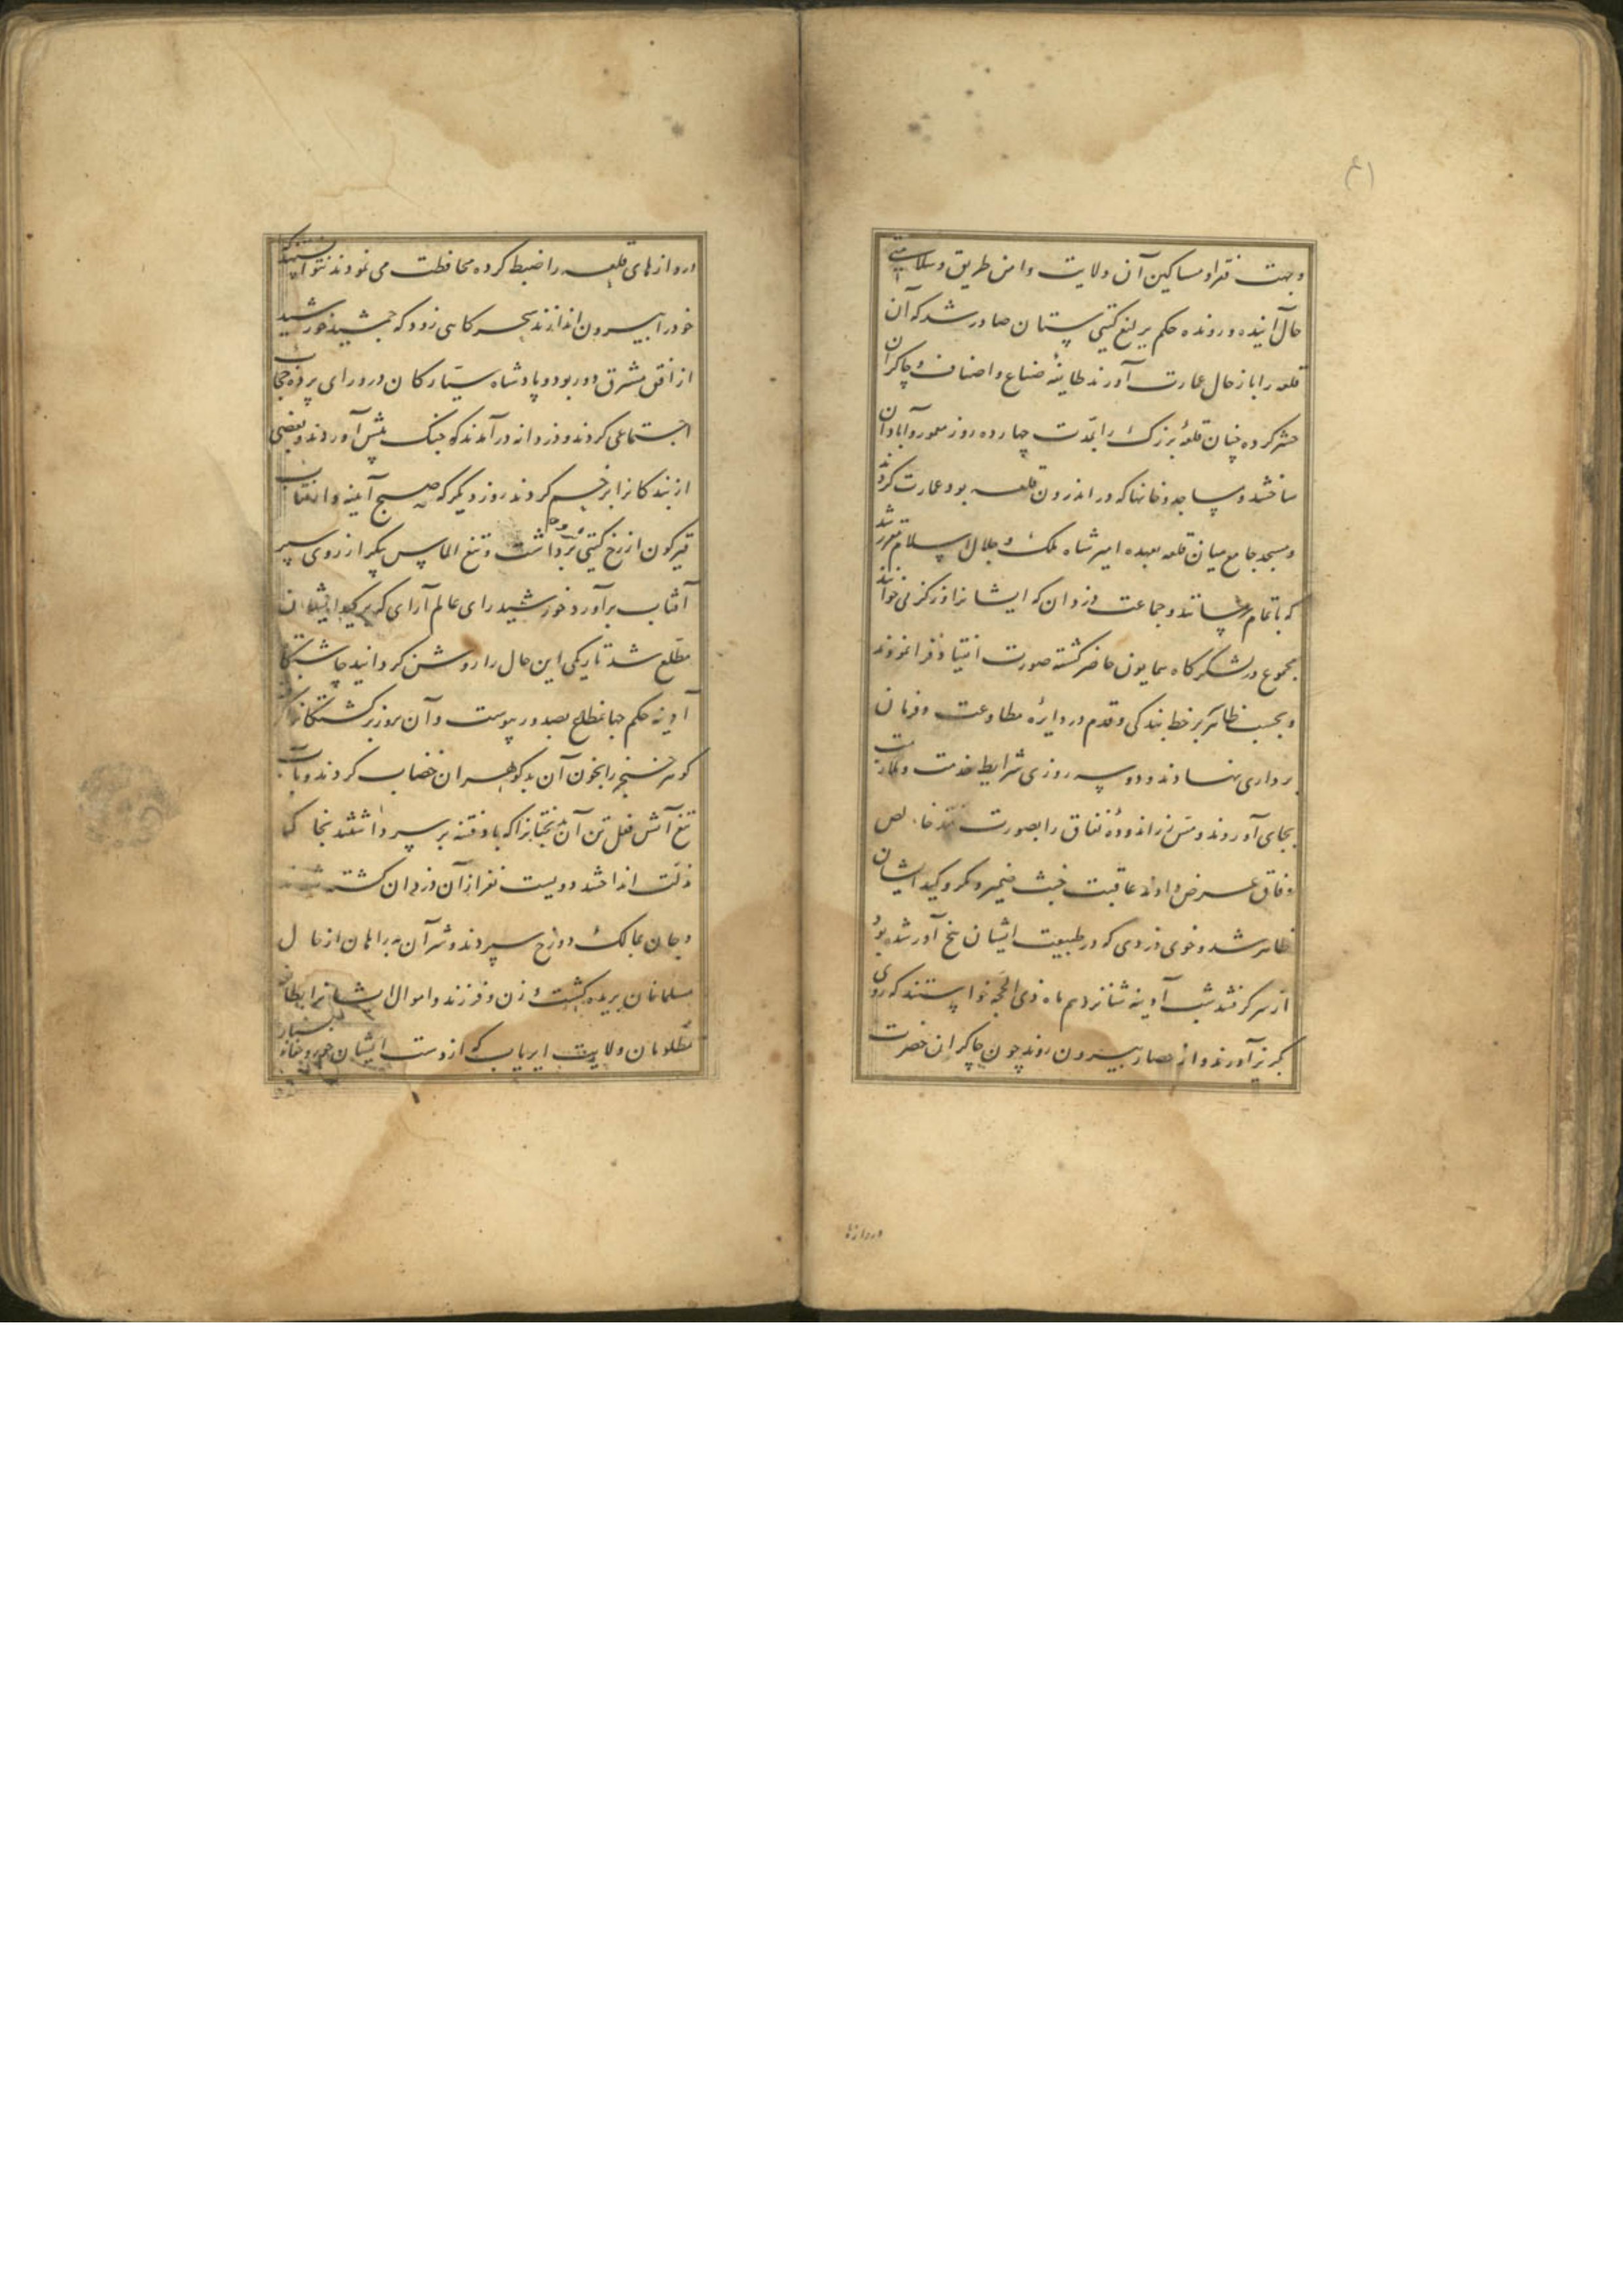 (۴۱)
وجهت فقرا و مساکین آن ولایت وامن طریق وسلامتی
حال آینده و رونده حکم یرلیغ گیتی ستان صادر شد که آن
قلعه را باز حال عمارت آورند طایفه صناع و اصناف و چاکران
حشر کرده چنان قلعهٔ بزرک را بمدت چهارده روز معمور و آبادان
ساختند و مساجد و خانها که در اندرون قلعه بود عمارت کردند
و مسجد جامع میان قلعه بعهده امیر شاه ملک و جلال اسلام مقرر شد
که باتمام رسانند و جماعت دزدان که ایشانرا می خوانند
مجموع در لشکرگاه همایون حاضر کشته صورت انقیاد فرا نمودند
و بحسب ظاهر سر بر خط بندگی و قدم در دایرهٔ مطاوعت و فرمان
برداری نهادند و دو سه روزی شرایط خدمت و ملازمت
بجای آوردند و مس زر اندودهٔ نفاق را بصورت نقد خالص
وفاق عرض دادند عاقبت خبث ضمیر و مکر و کید ایشان
ظاهر شد و خوی دزدی که در طبیعت ایشان بیخ آور شده بود
از سر کرفتند شب آدینه شانزدهم ماه ذی الحجه خواستند که روی
بگریز آورند و از حصار بیرون روند چون چاکران حضرت
دروازها
دروازهای قلعه را ضبط کرده محافظت می نمودند نتوانستند که
خود را بیرون اندازند سحر گاهی زود که جمشید خورشید
از افق مشرق دور بود و پادشاه سیارگان در ورای پرده حجاب
اجتماعی کردند و دزدانه در آمدند که جنک پیش آوردند و بعضی
از بندگانرا زخم کردند روز دیگر که صبح آینه وار نقاب
قیرگون از رخ گیتی برداشت و تیغ الماس پیکر از روی سپر
آفتاب برآورد خورشید رای عالم آرای که بر کید ایشان
مطلع شد تاریکی این حال را روشن کردانید چاشتگاه
آدینه حکم جهانمطاع بصدور پیوست و آن روز برکشتگانرا
گوهر خنجر را بخون آن بدگوهران خضاب کردند و بآب
تیغ آتش فعل تن آن بدبختانرا که باد فتنه بر سر داشتند بخاک
ذلت انداختند دویست نفر از آن دزدان کشته شدند
و جان بمالک دوزخ سپردند و شر آن بدراهان از حال
مسلمانان بریده کشت و زن و فرزند و اموال ایشانرا
مظلومان ولایت ایریاب که از دست ایشان جور و جفای بسیار